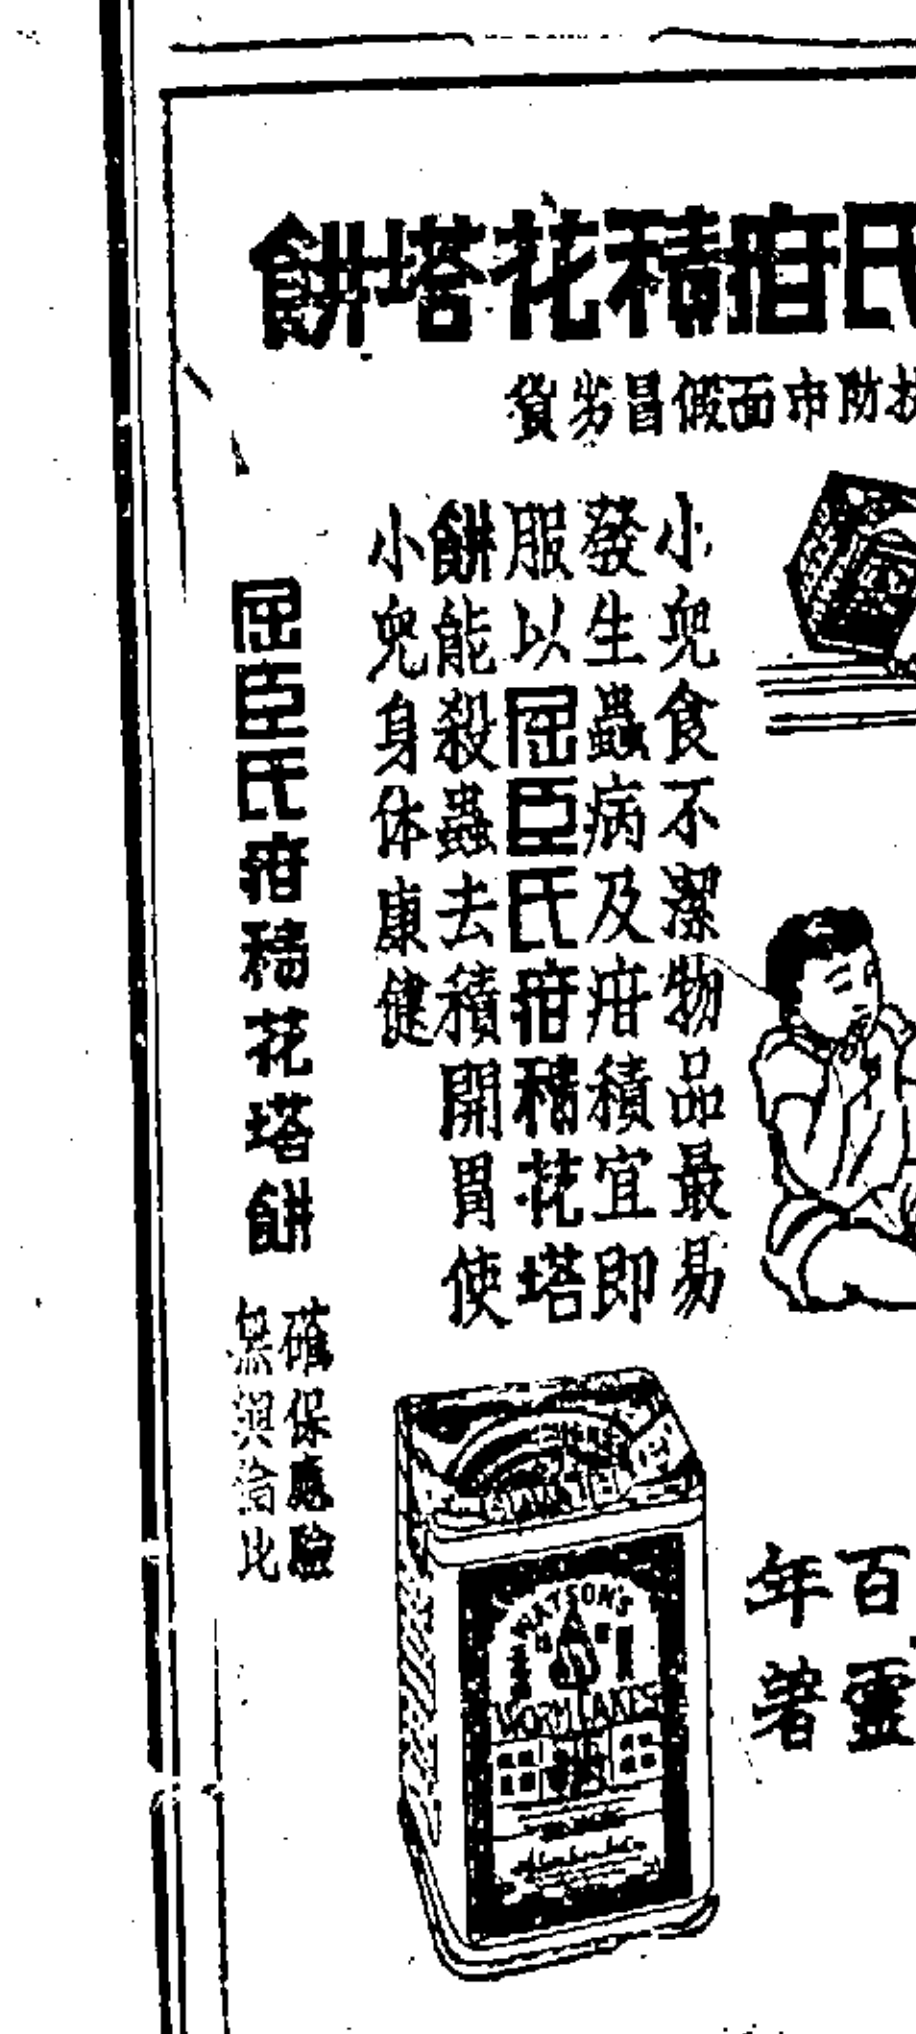 氏疳積花塔餅
防市面假冒劣貨
小兒食不潔物品最易
發生蟲病及疳積宜即
服以屈臣氏疳積花塔
餅能殺蟲去積開胃使
小兒身体康健
屈臣氏疳積花塔餅
確保應驗
無與倫比
百
年
靈
著
WATSON'S
WORM CAKES